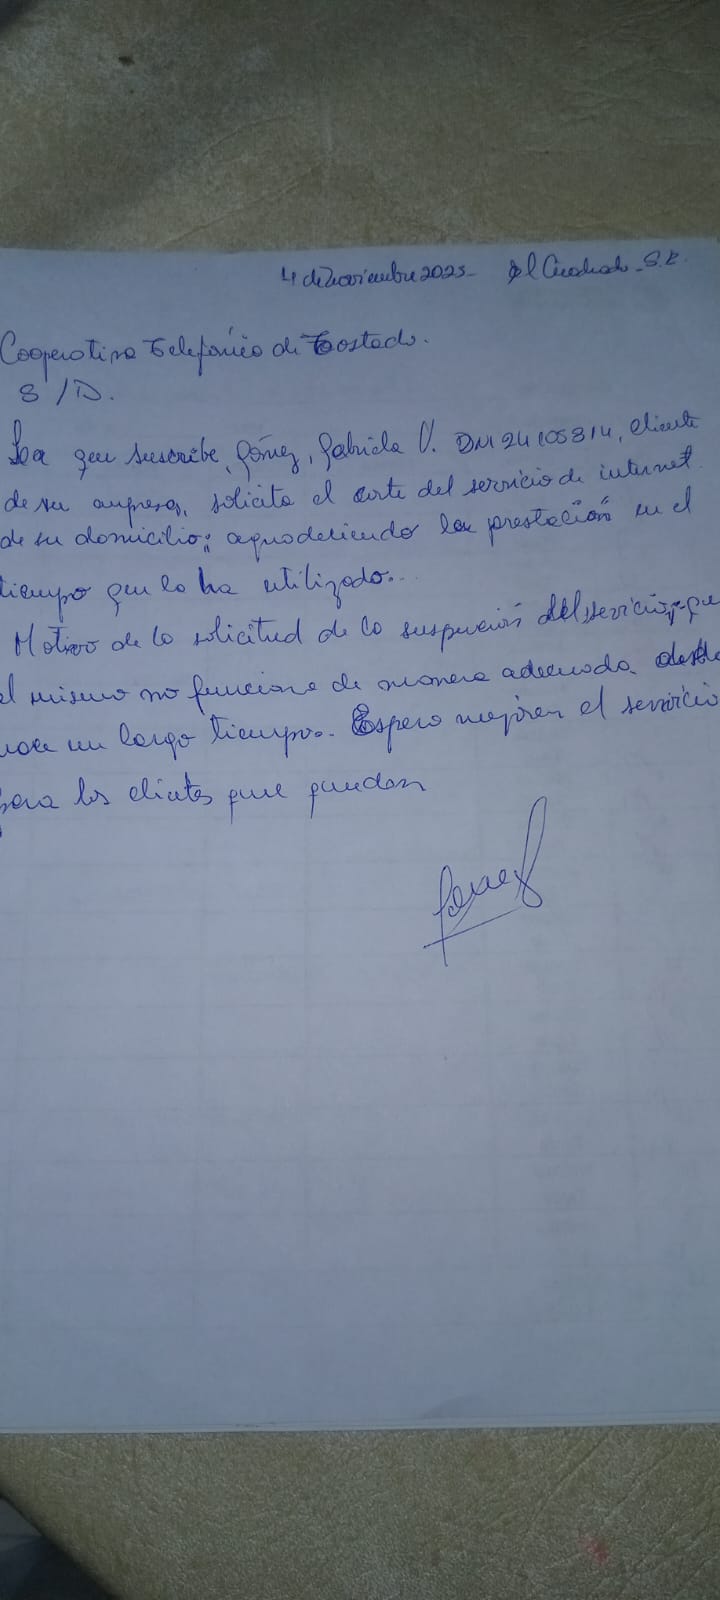 4 de Noviembre 2025- El Cuadrado - S.E.
Cooperativa Telefónica de Tostado.
S/D.
La que suscribe, Gómez, Gabriela V. DNI 24105814, cliente
de su empresa, solicita el corte del servicio de internet
de su domicilio; agradeciendo la prestación en el
tiempo que lo ha utilizado..
Motivo de la solicitud de la suspensión del servicio, que
el mismo no funciona de manera adecuada desde
hace un largo tiempo. Espero mejoren el servicio
para los clientes que quedan